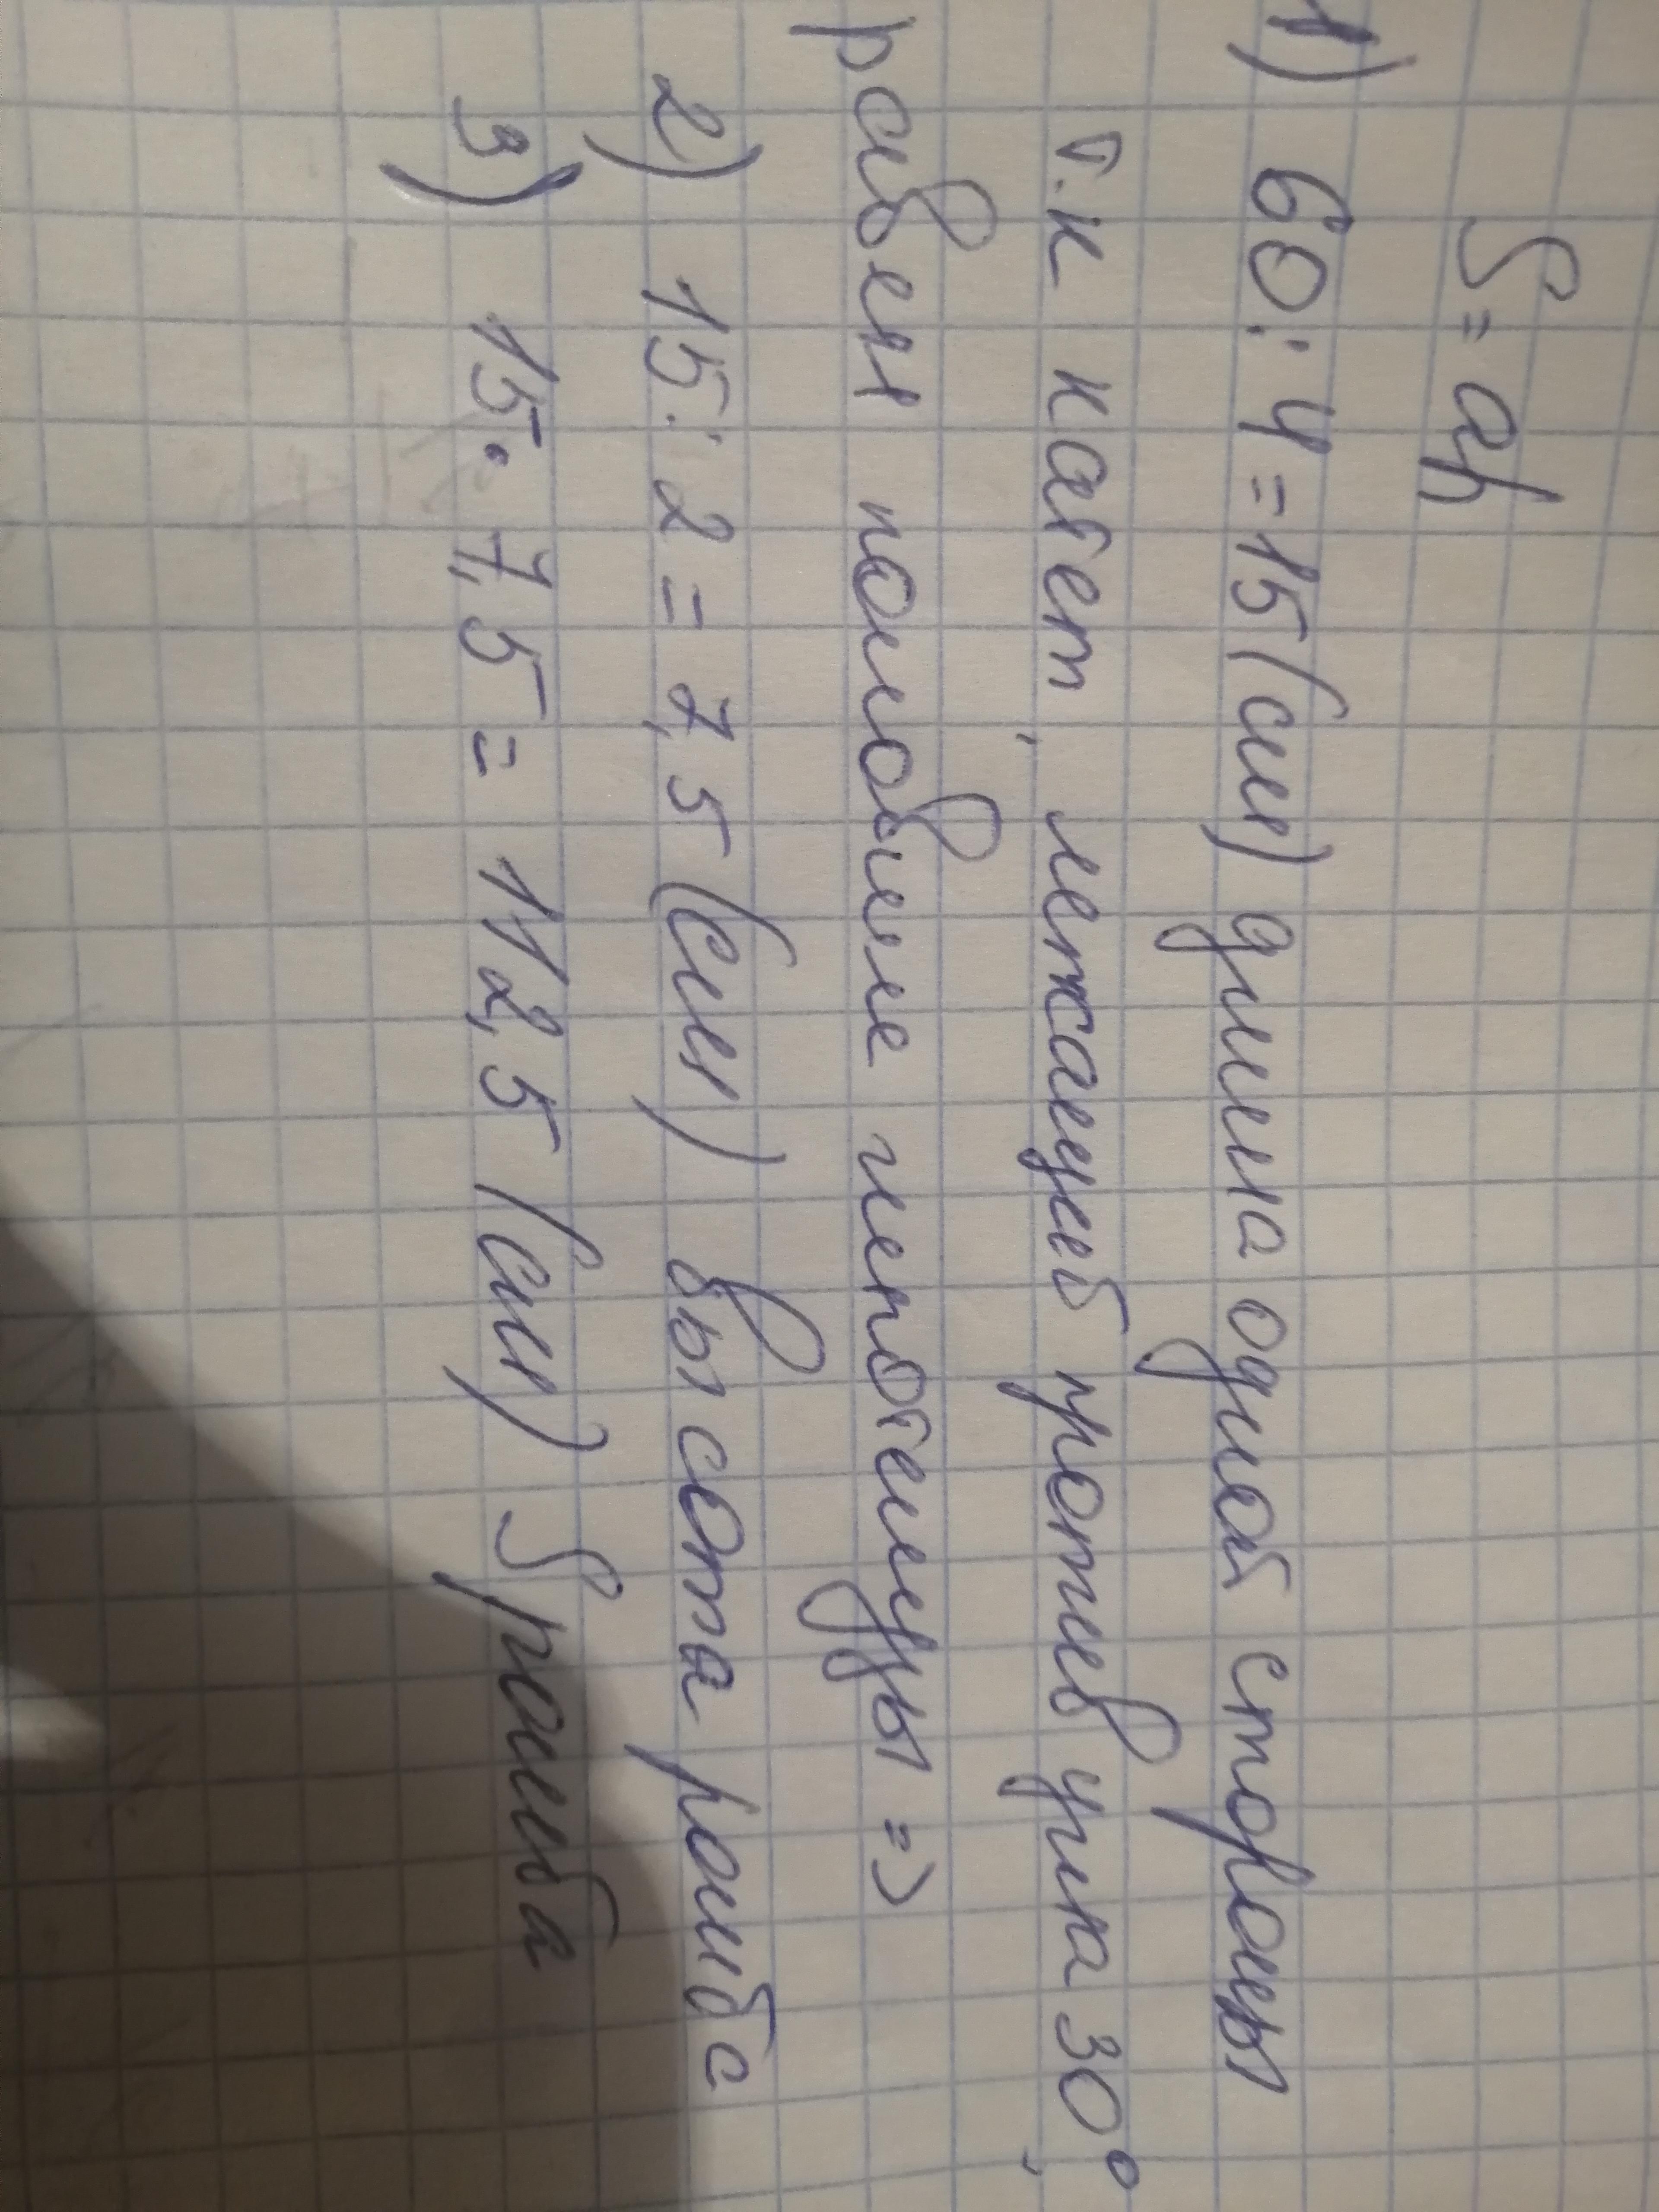 S = ah
1) 60 : 4 = 15 (см) длина одной стороны
т.к катет, лежащей против угла 30°,
равен половине гипотенузы =>
2) 15 : 2 = 7,5 (см) высота ромба
3) 15 · 7,5 = 112,5 (см) S ромба